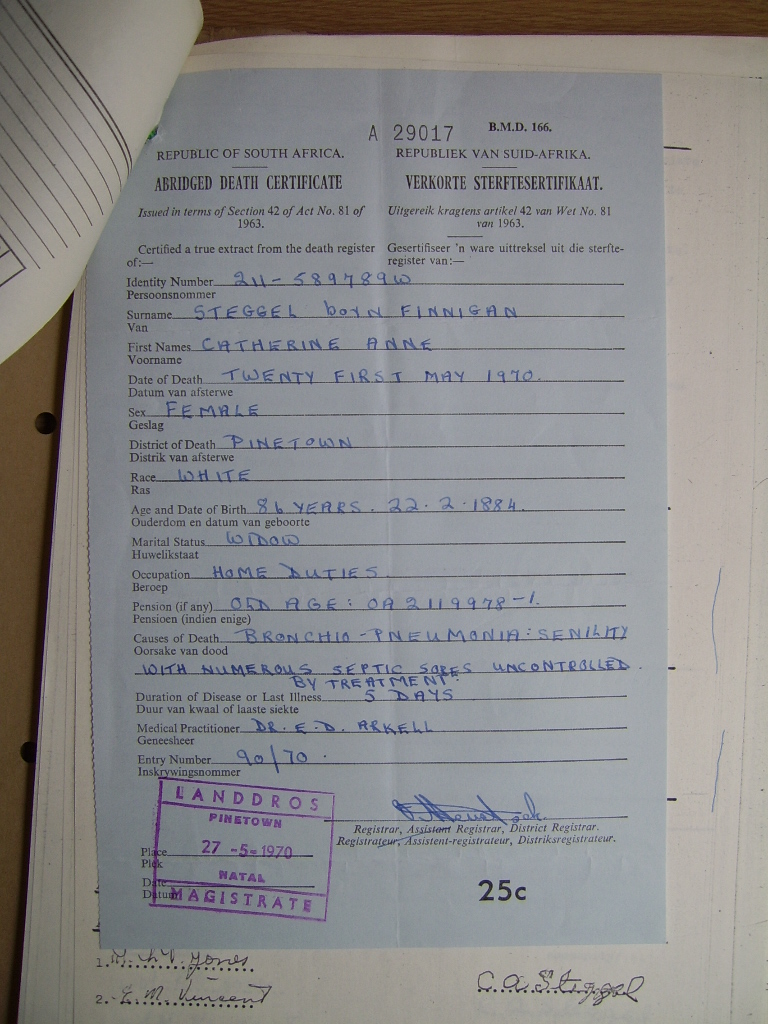 A 29017 B.M.D. 166.
REPUBLIC OF SOUTH AFRICA. REPUBLIEK VAN SUID-AFRIKA.
ABRIDGED DEATH CERTIFICATE VERKORTE STERFTESERTIFIKAAT.
Issued in terms of Section 42 of Act No. 81 of Uitgereik kragtens artikel 42 van Wet No. 81
1963. van 1963.
Certified a true extract from the death register Gesertifiseer 'n ware uittreksel uit die sterfte-
of:— register van:—
Identity Number 211-589789W
Persoonsnommer
Surname STEGGEL born FINNIGAN
Van
First Names CATHERINE ANNE
Voorname
Date of Death TWENTY FIRST MAY 1970.
Datum van afsterwe
Sex FEMALE
Geslag
District of Death PINETOWN
Distrik van afsterwe
Race WHITE
Ras
Age and Date of Birth 86 YEARS. 22.2.1884.
Ouderdom en datum van geboorte
Marital Status WIDOW
Huwelikstaat
Occupation HOME DUTIES.
Beroep
Pension (if any) OLD AGE: OA 2119978-1.
Pensioen (indien enige)
Causes of Death BRONCHIO-PNEUMONIA: SENILITY
Oorsake van dood
WITH NUMEROUS SEPTIC SORES UNCONTROLLED
BY TREATMENT.
Duration of Disease or Last Illness 5 DAYS
Duur van kwaal of laaste siekte
Medical Practitioner DR. E. D. ARKELL
Geneesheer
Entry Number 90/70.
Inskrywingsnommer
LANDDROS
PINETOWN
Registrar, Assistant Registrar, District Registrar.
Registrateur, Assistent-registrateur, Distriksregistrateur.
Place 27-5-1970
Plek
NATAL
Date
Datum MAGISTRATE
25c
1. Jones.
2. E. M. Vincent C. A. Steggel